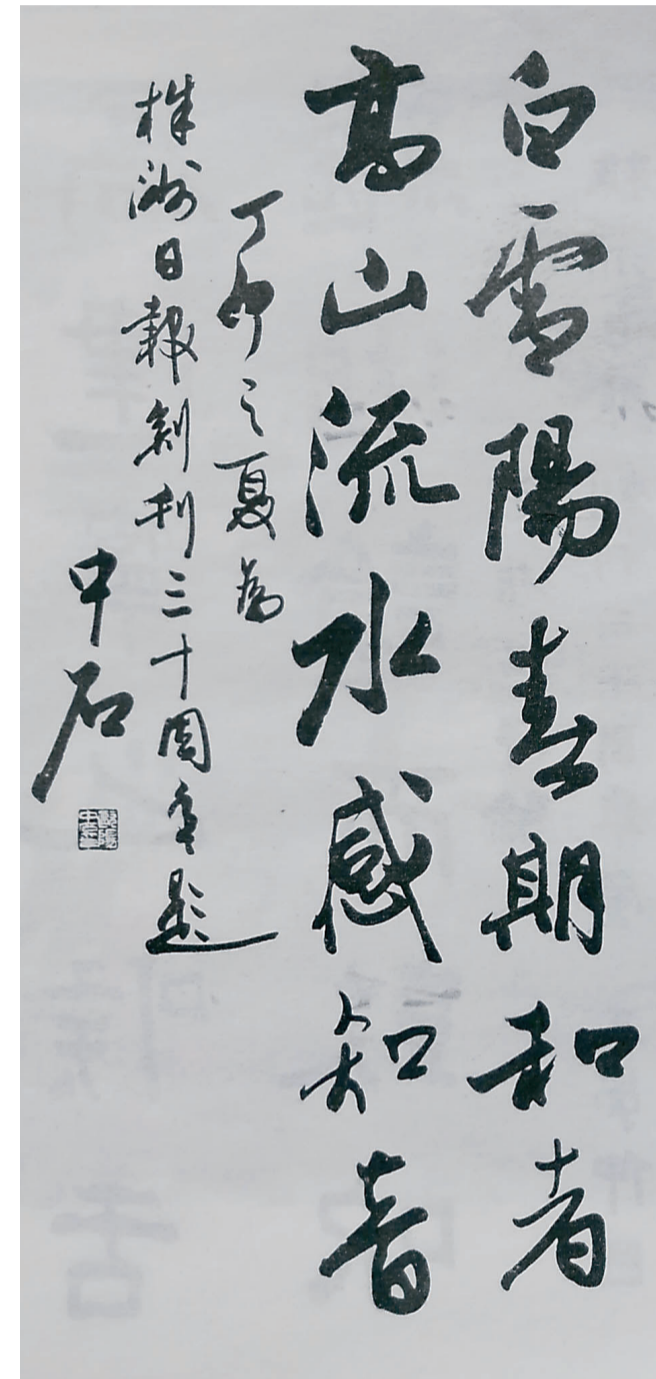 白雪陽春期和者
高山流水感知音
丁卯之夏為
株洲日報創刊三十周年題
中石